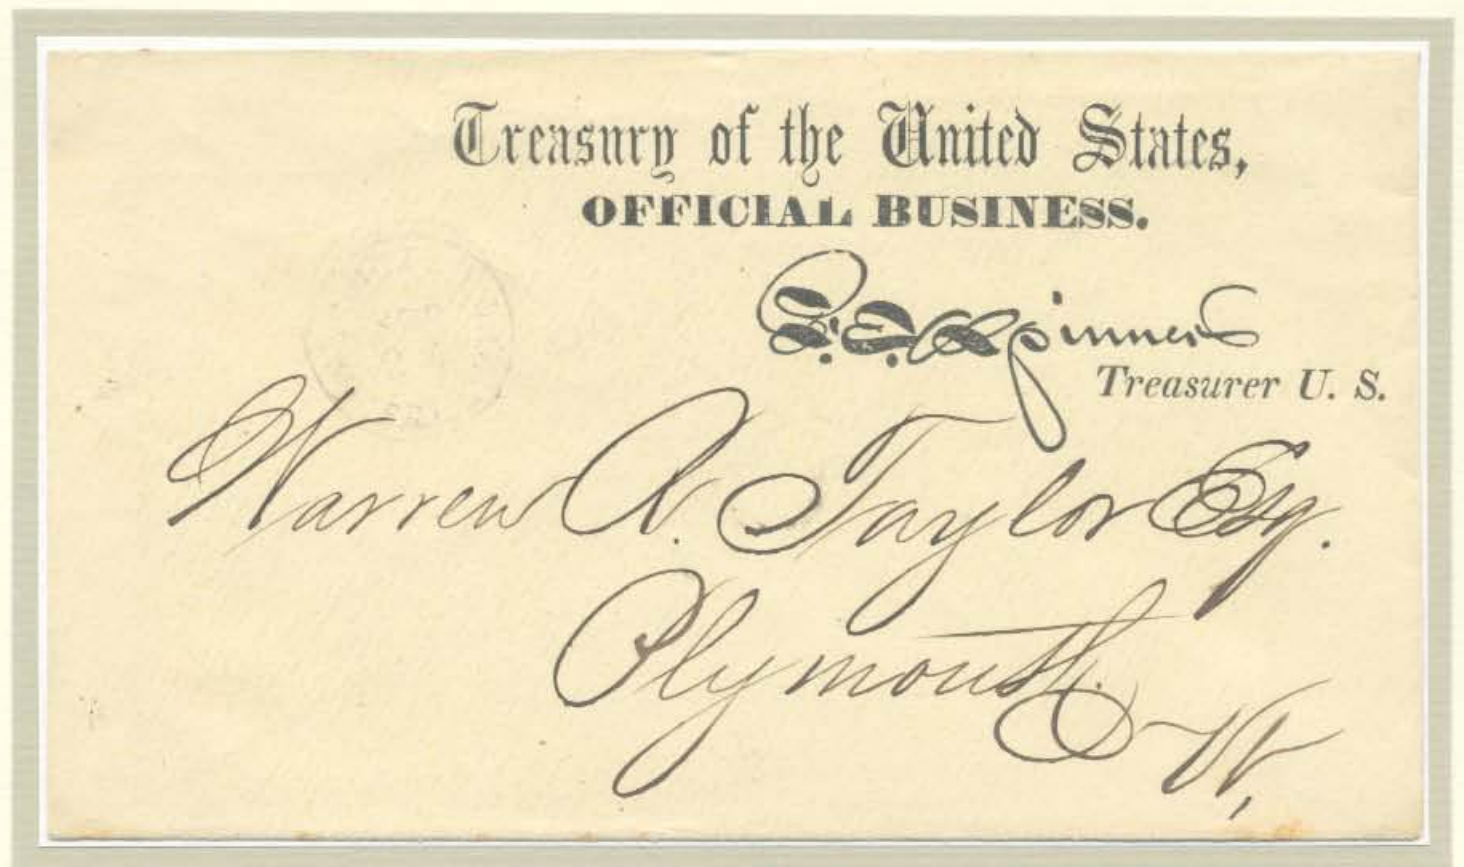 Treasury of the United States,
OFFICIAL BUSINESS.
F. E. Spinner
Treasurer U. S.
Warren A. Taylor Esq.
Plymouth
Vt,